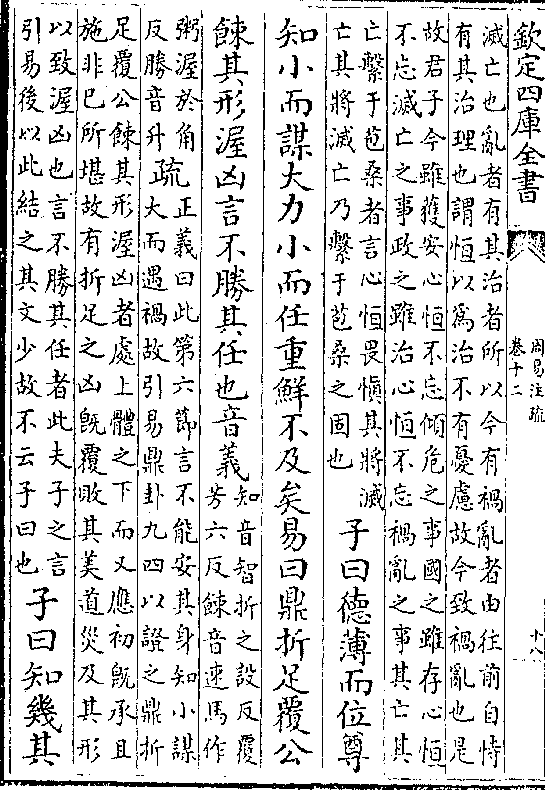 欽定四庫全書
周易注疏
卷十二
十八
滅亡也亂者有其治者所以今有禍亂者由往前自恃
有其治理也謂恒以為治不有憂慮故今致禍亂也是
故君子今雖獲安心恒不忘傾危之事國之雖存心恒
不忘滅亡之事政之雖治心恒不忘禍亂之事其亡其
亡繫于苞桑者言心恒畏慎其將滅
亡其將滅亡乃繫于苞桑之固也
子曰德薄而位尊
知小而謀大力小而任重鮮不及矣易曰鼎折足覆公
餗其形渥凶言不勝其任也音義
知音智折之設反覆
芳六反餗音速馬作
粥渥於角
反勝音升
疏
正義曰此第六節言不能安其身知小謀
大而遇禍故引易鼎卦九四以證之鼎折
足覆公餗其形渥凶者處上體之下而又應初既承且
施非已所堪故有折足之凶既覆敗其美道災及其形
以致渥凶也言不勝其任者此夫子之言
引易後以此結之其文少故不云子曰也
子曰知幾其